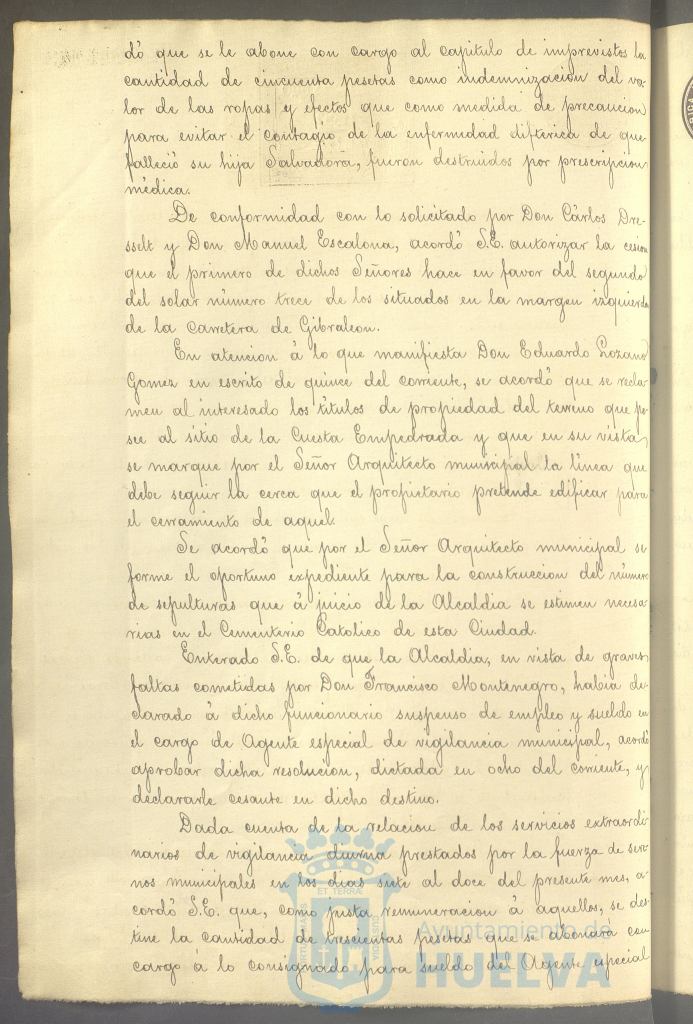 dó que se le abone con cargo al capitulo de imprevistos la
cantidad de cincuenta pesetas como indemnizacion del va-
lor de las ropas y efectos que como medida de precaucion
para evitar el contagio de la enfermedad diftérica de que
falleció su hija Salvadora, fueron destruidos por prescripcion
médica.
De conformidad con lo solicitado por Don Cárlos Dre-
sselt y Don Manuel Escalona, acordó S.E. autorizar la cesion
que el primero de dichos Señores hace en favor del segundo
del solar número trece de los situados en la margen izquierda
de la Carretera de Gibraleon.
En atencion á lo que manifiesta Don Eduardo Lozano
Gomez en escrito de quince del corriente, se acordó que se recla-
men al interesado los títulos de propiedad del terreno que po-
see al sitio de la Cuesta Empedrada y que en su vista
se marque por el Señor Arquitecto municipal la línea que
debe seguir la cerca que el propietario pretende edificar para
el cerramiento de aquel.
Se acordó que por el Señor Arquitecto municipal se
forme el oportuno expediente para la construccion del número
de sepulturas que á juicio de la Alcaldia se estimen necesa-
rias en el Cementerio Catolico de esta Ciudad.
Enterado S.E. de que la Alcaldia, en vista de graves
faltas cometidas por Don Francisco Montenegro, habia de-
clarado á dicho funcionario suspenso de empleo y sueldo en
el cargo de Agente especial de vigilancia municipal, acordó
aprobar dicha resolucion, dictada en ocho del corriente, y
declararle cesante en dicho destino.
Dada cuenta de la relacion de los servicios extraordi-
narios de vigilancia diurna prestados por la fuerza de sere-
nos municipales en los dias siete al doce del presente mes, a-
cordó S.E. que, como justa remuneracion á aquellos, se des-
tine la cantidad de trescientas pesetas que se abonará con
cargo á lo consignado para sueldo del Agente especial
ET TERRÆ
Ayuntamiento de
HUELVA